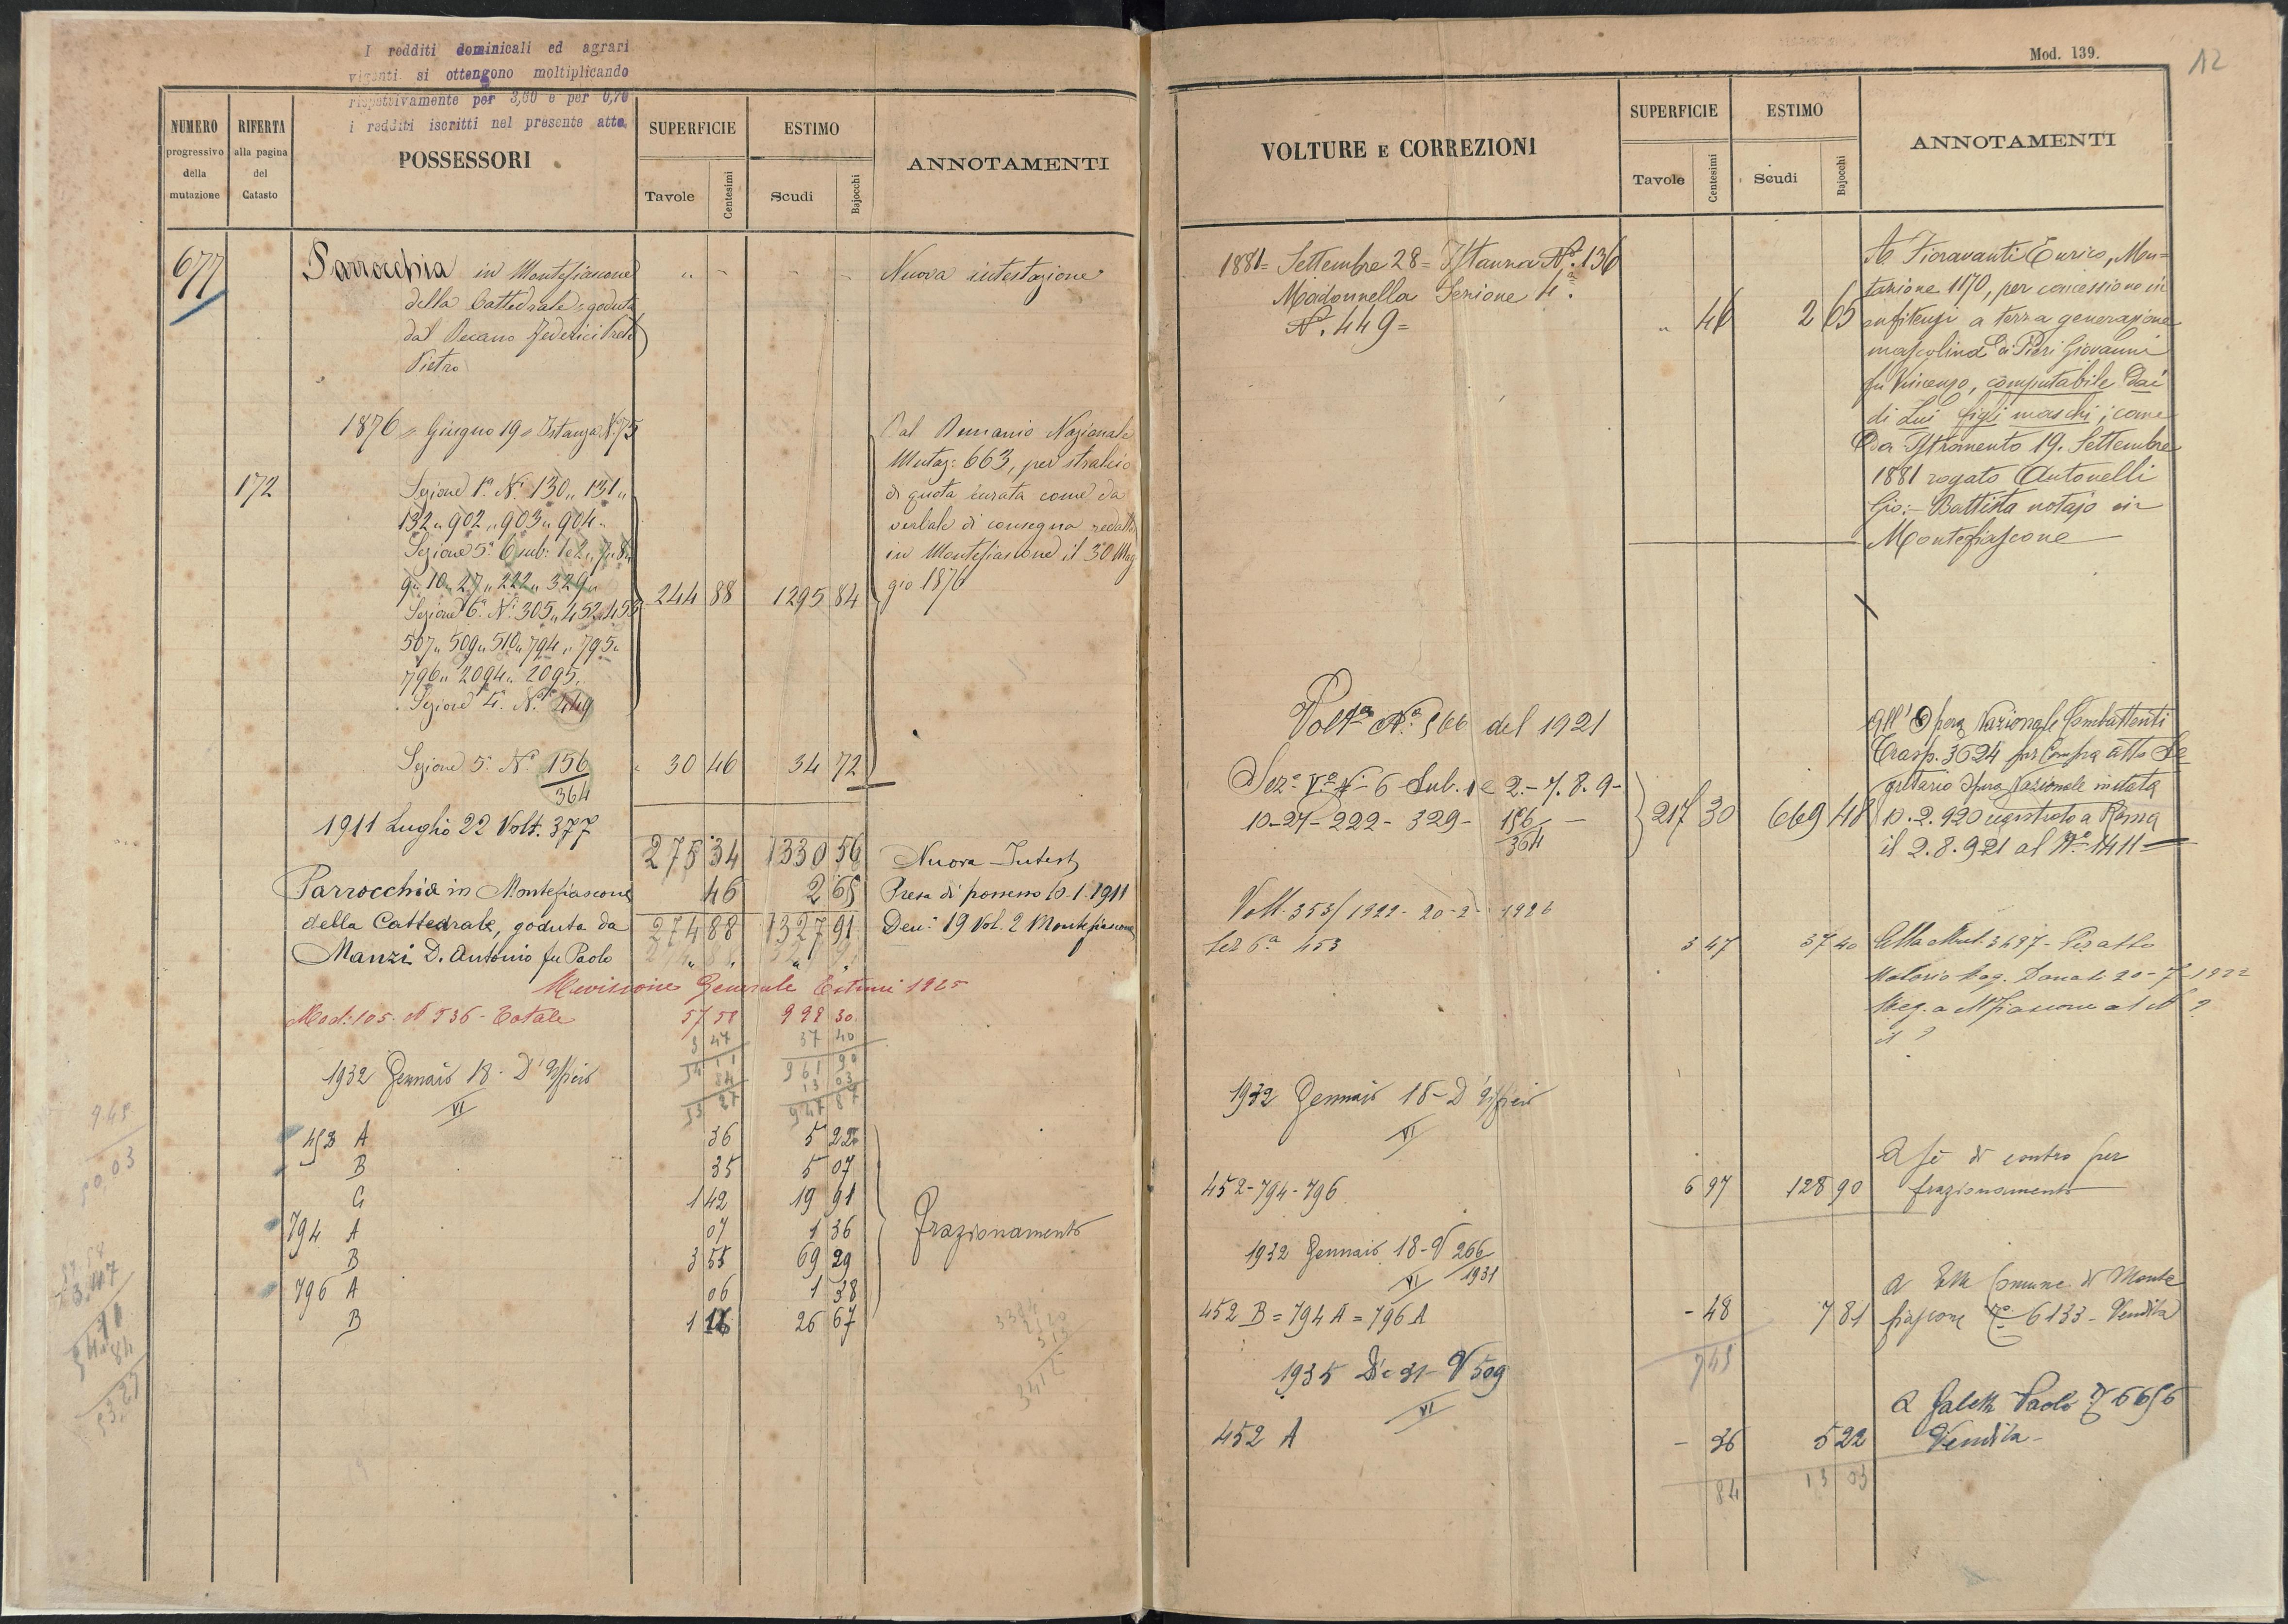 I redditi dominicali ed agrari
vigenti si ottengono moltiplicando
rispettivamente per 3,60 e per 0,70
i redditi iscritti nel presente atto.
NUMERO progressivo della mutazione
RIFERTA alla pagina del Catasto
POSSESSORI
SUPERFICIE
Tavole Centesimi
ESTIMO
Scudi Bajocchi
ANNOTAMENTI
677 Parrocchia in Montefiascone " - - - Nuova intestazione
della Cattedrale, goduta
dal Decano Federici
Pietro
1876 " Giugno 19 " Istanza N. 75
Dal Demanio Nazionale
Mutaz: 663, per stralcio
di quota curata come da
verbale di consegna redatto
in Montefiascone il 30 Mag
gio 1876
172 Sezione 1ª N. 130 " 131 "
132 " 902 " 903 " 904 "
Sezione 5ª 6 sub: 1 e 2 " 7 " 8 "
9 " 10 " 27 " 222 " 329 "
Sezione 6ª N. 305 " 452 " 453 244 88 1295 84
507 " 509 " 510 " 794 " 795 "
796 " 2094 " 2095 "
Sezione 4ª N. 449
Sezione 5ª N. 156/364 30 46 34 72
1911 Luglio 22 Volt. 377
275 34 1330 56 Nuova Intest
Parrocchia in Montefiascone 46 2 65 Presa di possesso 10.1.1911
della Cattedrale, goduta da 274 88 1327 91 Den: 19 Vol. 2 Montefiascone
Manzi D. Antonio fu Paolo " " " "
Revisione Generale Estimi 1925
Mod: 105 N 536 - Totale 57 58 999 30
3 47 37 40
54 11 961 90
84 13 03
53 27 947 87
1932 Gennaio 18 - D'Ufficio
VI
452 A 36 5 22
B 35 5 07
C 1 42 19 91
794 A 07 1 36
B 3 55 69 29
796 A 06 1 38
B 1 16 26 67
frazionamento
Mod. 139.
12
VOLTURE E CORREZIONI
SUPERFICIE
Tavole Centesimi
ESTIMO
Scudi Bajocchi
ANNOTAMENTI
1881 = Settembre 28 = Istanza N. 136
Madonnella Sezione 4ª
N. 449 = " 46 2 65
A Fioravanti Enrico, Mu-
tazione 1170, per concessione in
enfiteusi a terza generazione
mascolina di Pieri Giovanni
fu Vincenzo, computabile dai
di Lui figli maschi; come
da Istromento 19. Settembre
1881 rogato Antonelli
Gio: Battista notajo in
Montefiascone
Volta N. 566 del 1921
Sez. Vª N. 6 Sub. 1 e 2 - 7. 8. 9 -
10 - 27 - 222 - 329 - 156/364 - 217 30 669 48
All' Opera Nazionale Combattenti
Trasp. 3624 per Compra atto Se
gretario Opera Nazionale in data
10. 2. 920 registrato a Roma
il 2. 8. 921 al N. 1411
Volt. 353/1922 -
Sez 6ª 453 3 47 37 40
Alla Mut. 3697 - Per atto
Notario Rog. Donati 20 - 7 - 1922
Reg. a Mfiascone al N ?
il ?
1932 Gennaio 18 - D'Ufficio
VI
452 - 794 - 796 6 97 128 90
A sè di contro per
frazionamento
1932 Gennaio 18 - V 266/1931
VI
452 B = 794 A = 796 A - 48 7 81
Comune di Monte
fiascone 6133 - Vendita
7 45
1935 Dic 31 - V 509
VI
452 A - 36 5 22
Paolo 6656
Vendita
84 13 03